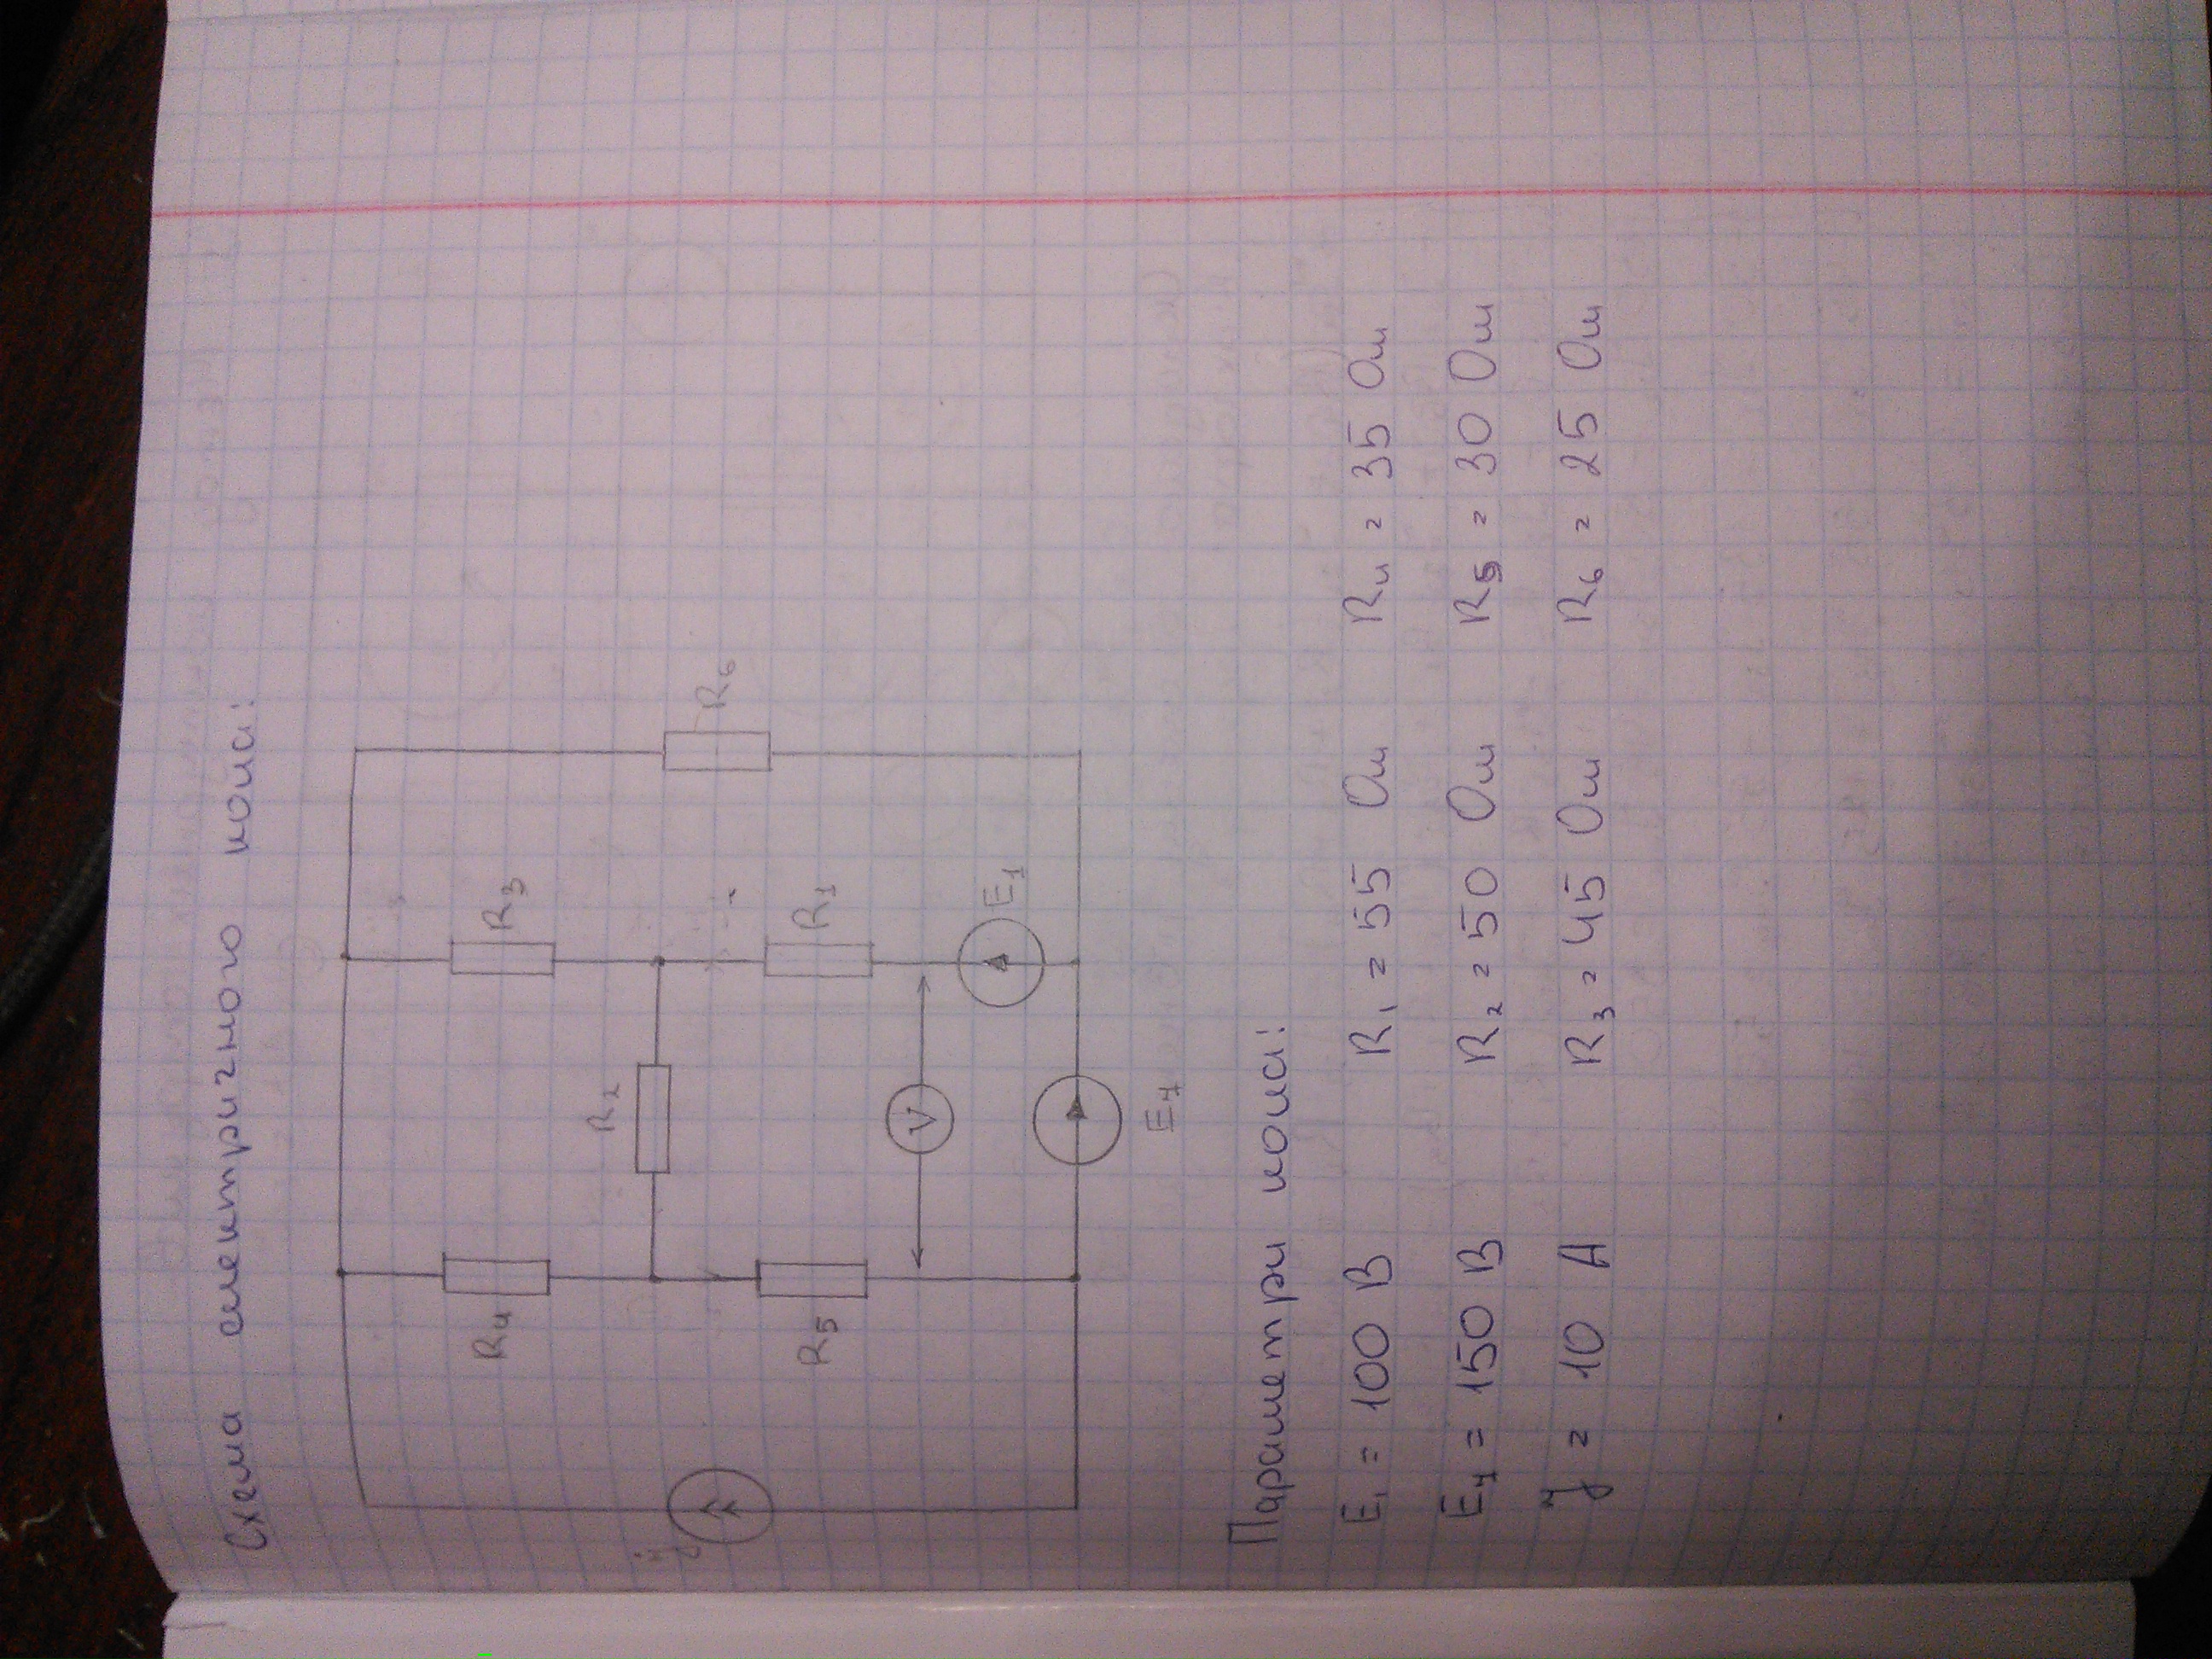 Схема електричного кола:
R₄
R₃
R₂
J
R₆
R₅
R₁
V
E₁
E₇
Параметри кола:
E₁ = 100 В R₁ = 55 Ом R₄ = 35 Ом
E₇ = 150 В R₂ = 50 Ом R₅ = 30 Ом
J = 10 А R₃ = 45 Ом R₆ = 25 Ом